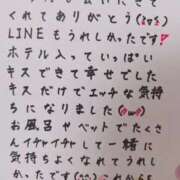 くれてありがとう(
LINEもうれしかったです!
ホテル入っていっぱい
キスできて幸せでした
キスだけでエッチな気持
ちになりました(
お風呂やベットでたくさ
んイチャイチャして一緒に
気持ちよくなれてうれし
かったです( )これからも